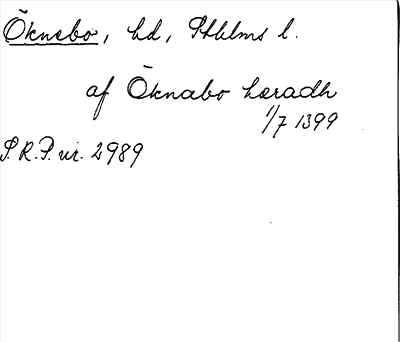 Öknebo, hd, Sthlms l.
af Öknabo hæradh
1/7 1399
S.R.P. nr. 2989